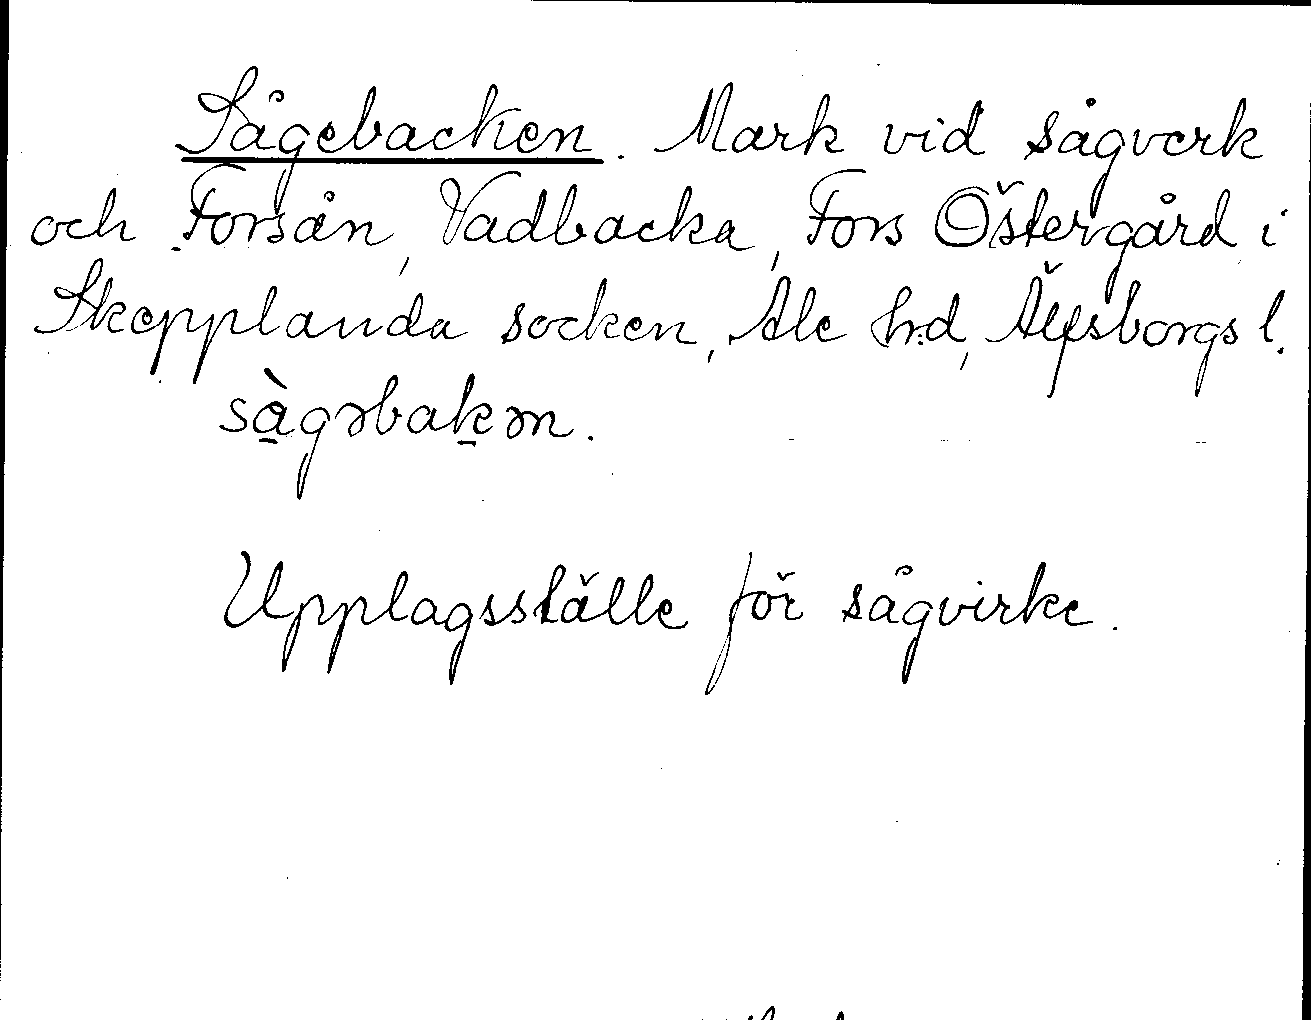 Sågebacken. Mark vid sågverk
och Forsån, Vadbacka, Fors Östergård i
Skepplanda socken, Ale hd, Älfsborgs l.
sàgəbakən.
Upplagsställe för sågvirke.